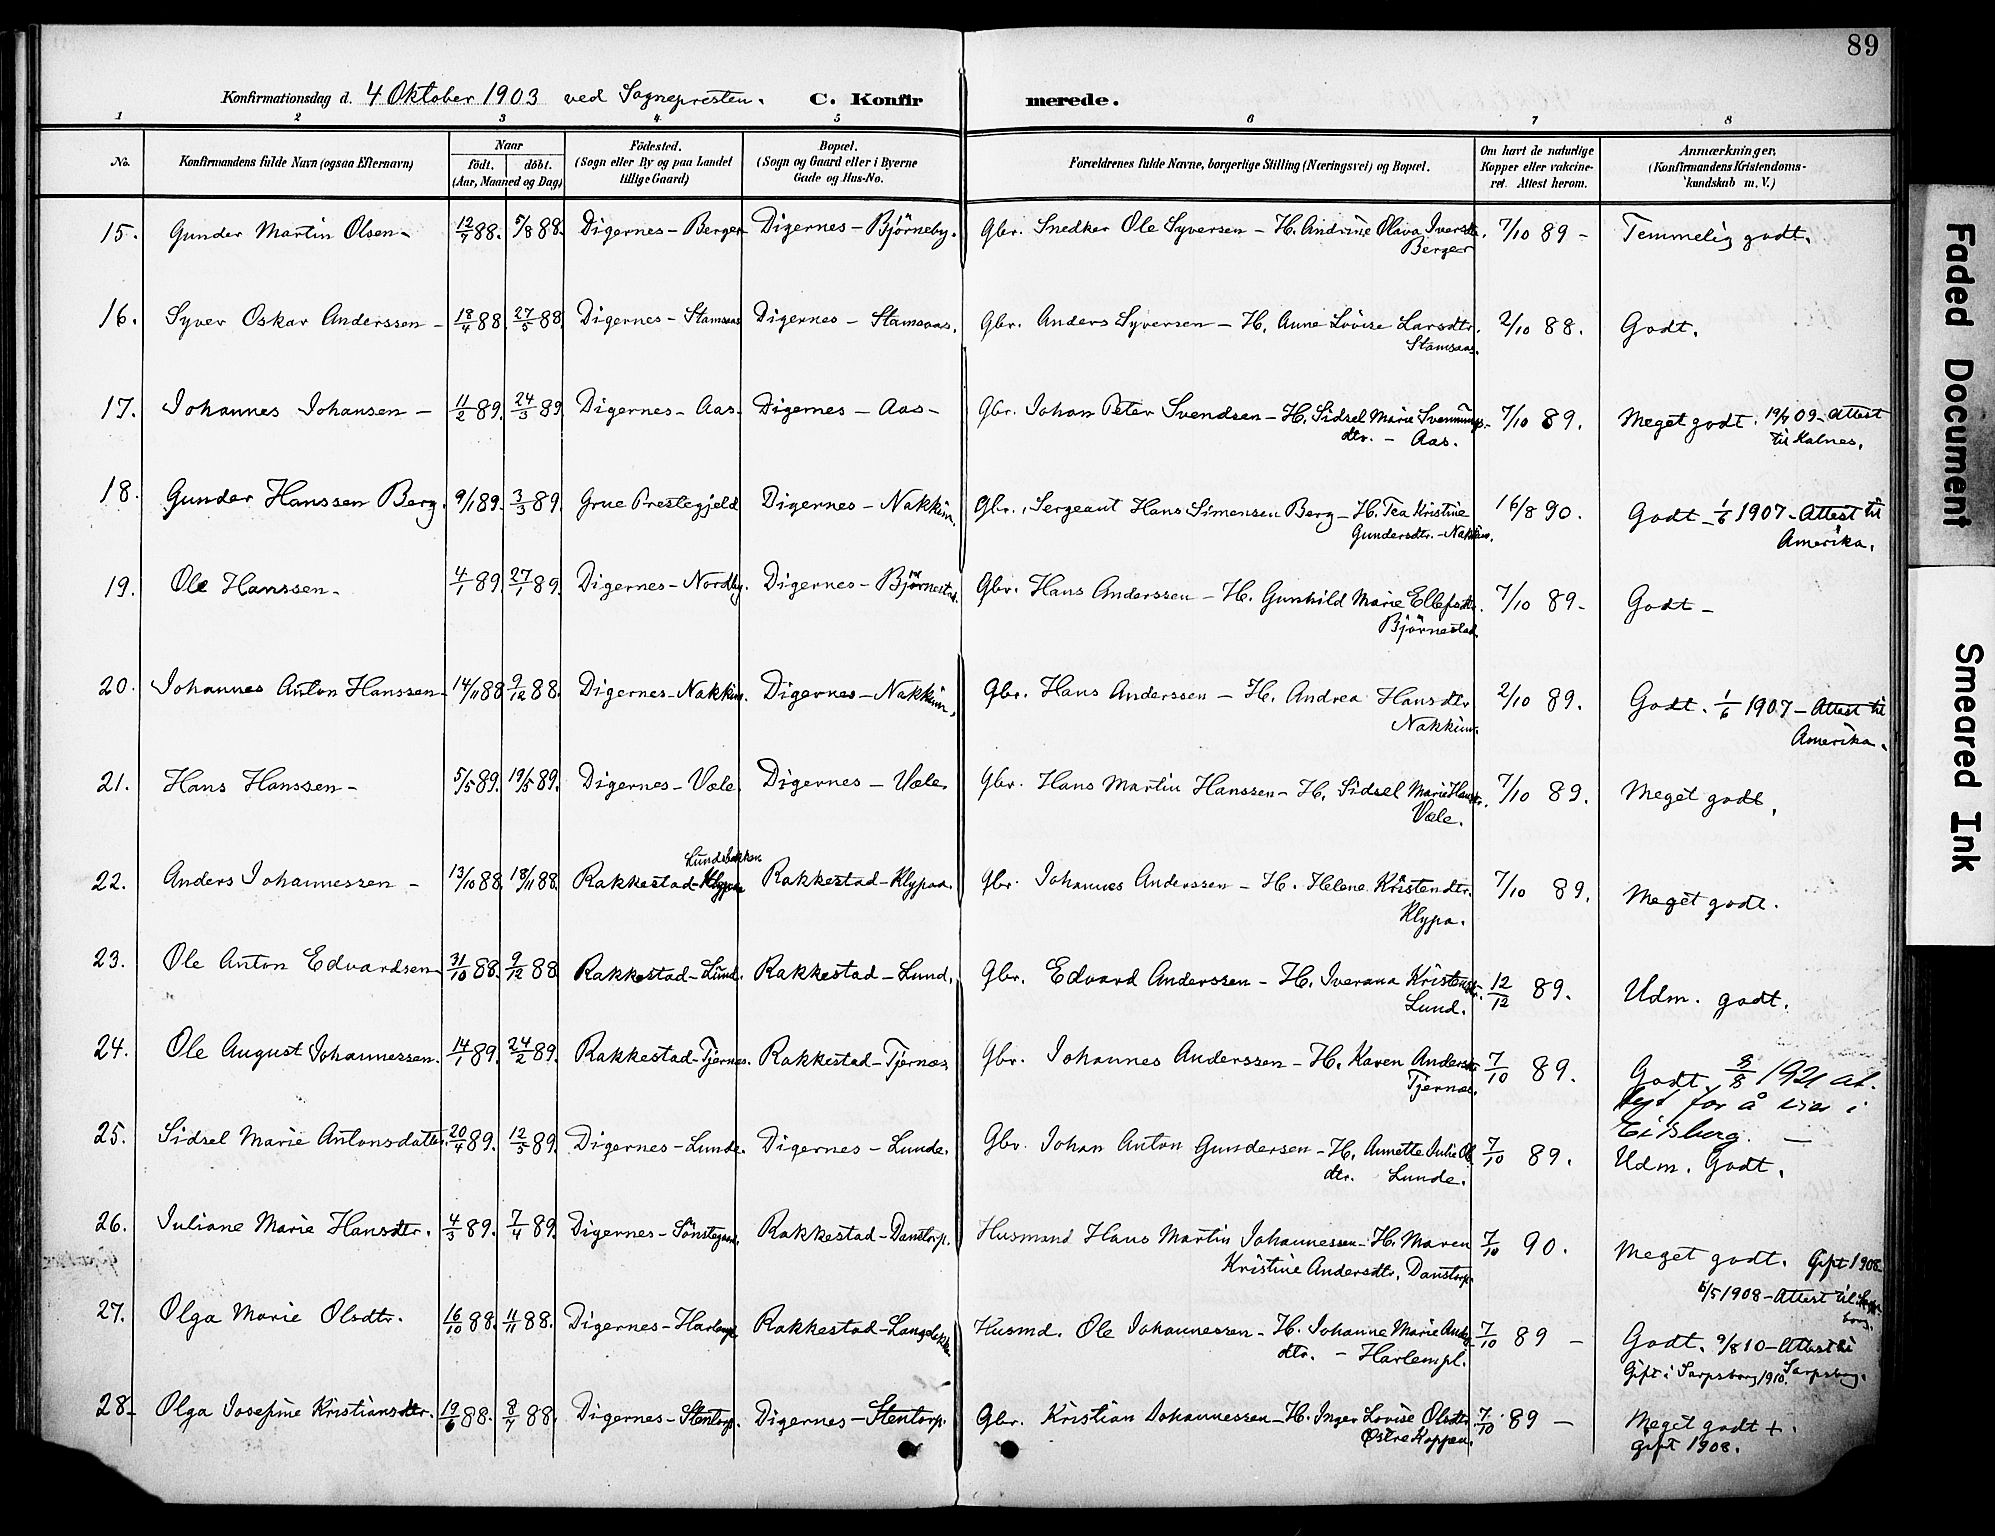 89
Konfirmationsdag d. 4 Oktober 1903 ved Sognepresten. C. Konfirmerede.
1 2 3 4 5 6 7 8
No. Konfirmandens fulde Navn (ogsaa Efternavn) Naar født. døbt. (Aar, Maaned og Dag) Fødested. (Sogn eller By og paa Landet tillige Gaard) Bopæl. (Sogn og Gaard eller i Byerne Gade og Hus-No. Forældrenes fulde Navne, borgerlige Stilling (Næringsvei) og Bopæl. Om havt de naturlige Kopper eller vakcineret. Attest herom. Anmærkninger, (Konfirmandens Kristendomskundskab m. V.)
15. Gunder Martin Olsen - 12/7 88. 5/8 88. Digernes - Berger Digernes - Björneby. Gbr. Snedker Ole Syversen - H. Andrine Oliva Iversdtr. 7/10 89 - Temmelig godt.
Berger
16. Syver Oskar Anderssen - 18/4 88 27/5 88. Digernes - Stamsaas Digernes - Stamsaas. Gbr. Anders Syversen - H. Anne Lovise Larsdtr. 2/10 88. Godt.
Stamsaas.
17. Johannes Johansen - 11/2 89. 24/3 89. Digernes - Aas. Digernes - Aas - Gbr. Johan Peter Svendsen - H. Sidsel Marie 7/10 89. Meget godt. 09 - Attest
dtr. - Aas. til Kalnes.
18. Gunder Hanssen Berg. 9/1 89. 3/3 89. Grue Prestegjeld Digernes - Nakkim. Gbr., Sergeant Hans Simensen Berg - H. Tea Kristine 16/8 90. Godt - 1/6 1907 - Attest til
Gundersdtr. - Nakkim. Amerika.
19. Ole Hanssen - 4/1 89. 27/1 89. Digernes - Nordby. Digernes - Björnestad. Gbr. Hans Anderssen - H. Gunhild Marie Ellefsdtr. 7/10 89 - Godt -
Björnestad.
20. Johannes Anton Hanssen - 14/11 88 9/12 88. Digernes - Nakkim. Digernes - Nakkim. Gbr. Hans Anderssen - H. Andrea Hansdtr. 2/10 89. Godt. 1/6 1907 - Attest til
Nakkim. Amerika.
21. Hans Hanssen - 5/5 89. 19/5 89. Digernes - Væle. Digernes - Væle. Gbr. Hans Martin Hanssen - H. Sidsel Marie Hansdtr. 7/10 89. Meget godt.
Væle.
Lundebakken
22. Anders Johannessen - 13/10 88. 18/11 88. Rakkestad - Klypaa Rakkestad - Klypaa. Gbr. Johannes Anderssen - H. Helene Kristendtr. 7/10 89. Meget godt.
Klypa.
23. Ole Anton Edvardsen - 31/10 88. 9/12 88. Rakkestad - Lund. Rakkestad - Lund. Gbr. Edvard Anderssen - H. Iverana Kristensdtr. 12/12 89. Udm. godt.
Lund.
24. Ole August Johannessen. 14/1 89. 24/2 89. Rakkestad - Tjernes. Rakkestad - Tjernes. Gbr. Johannes Anderssen - H. Karen Andersdtr. 7/10 89. Godt. 9/8 1921 at-
Tjernes. test for å vie i
Eidsberg. -
25. Sidsel Marie Antonsdatter. 20/4 89. 12/5 89. Digernes - Lunde. Digernes - Lunde. Gbr. Johan Anton Gundersen - H. Annette Julie Ols 7/10 89. Udm. Godt.
dtr. Lunde.
26. Juliane Marie Hansdtr. 4/3 89. 7/4 89. Digernes - Sönstegaard. Rakkestad - Danstorp. Husmand Hans Martin Johannessen - H. Maren 7/10 90. Meget godt. Gift 1908
Kristine Andersdtr. Danstorp. 6/5 1908 - Attest til
27. Olga Marie Olsdtr. 16/10 88. 11/11 88. Digernes - Harlempl. Rakkestad - Langelökka Husmd. Ole Johannessen - H. Johanne Marie Anders 7/10 89 - Godt. 9/8 10 - Attest til
dtr. - Harlempl. Sarpsborg.
Gift i Sarpsborg 1910.
28 - Olga Josefine Kristiansdtr. 19/6 88. 8/7 88. Digernes - Stentorp. Digernes - Stentorp. Gbr. Kristian Johannessen - H. Inger Lovise Olsdtr. 7/10 89 - Meget godt +.
Østre Koppen. gift 1908.
Faded Document
Smeared Ink